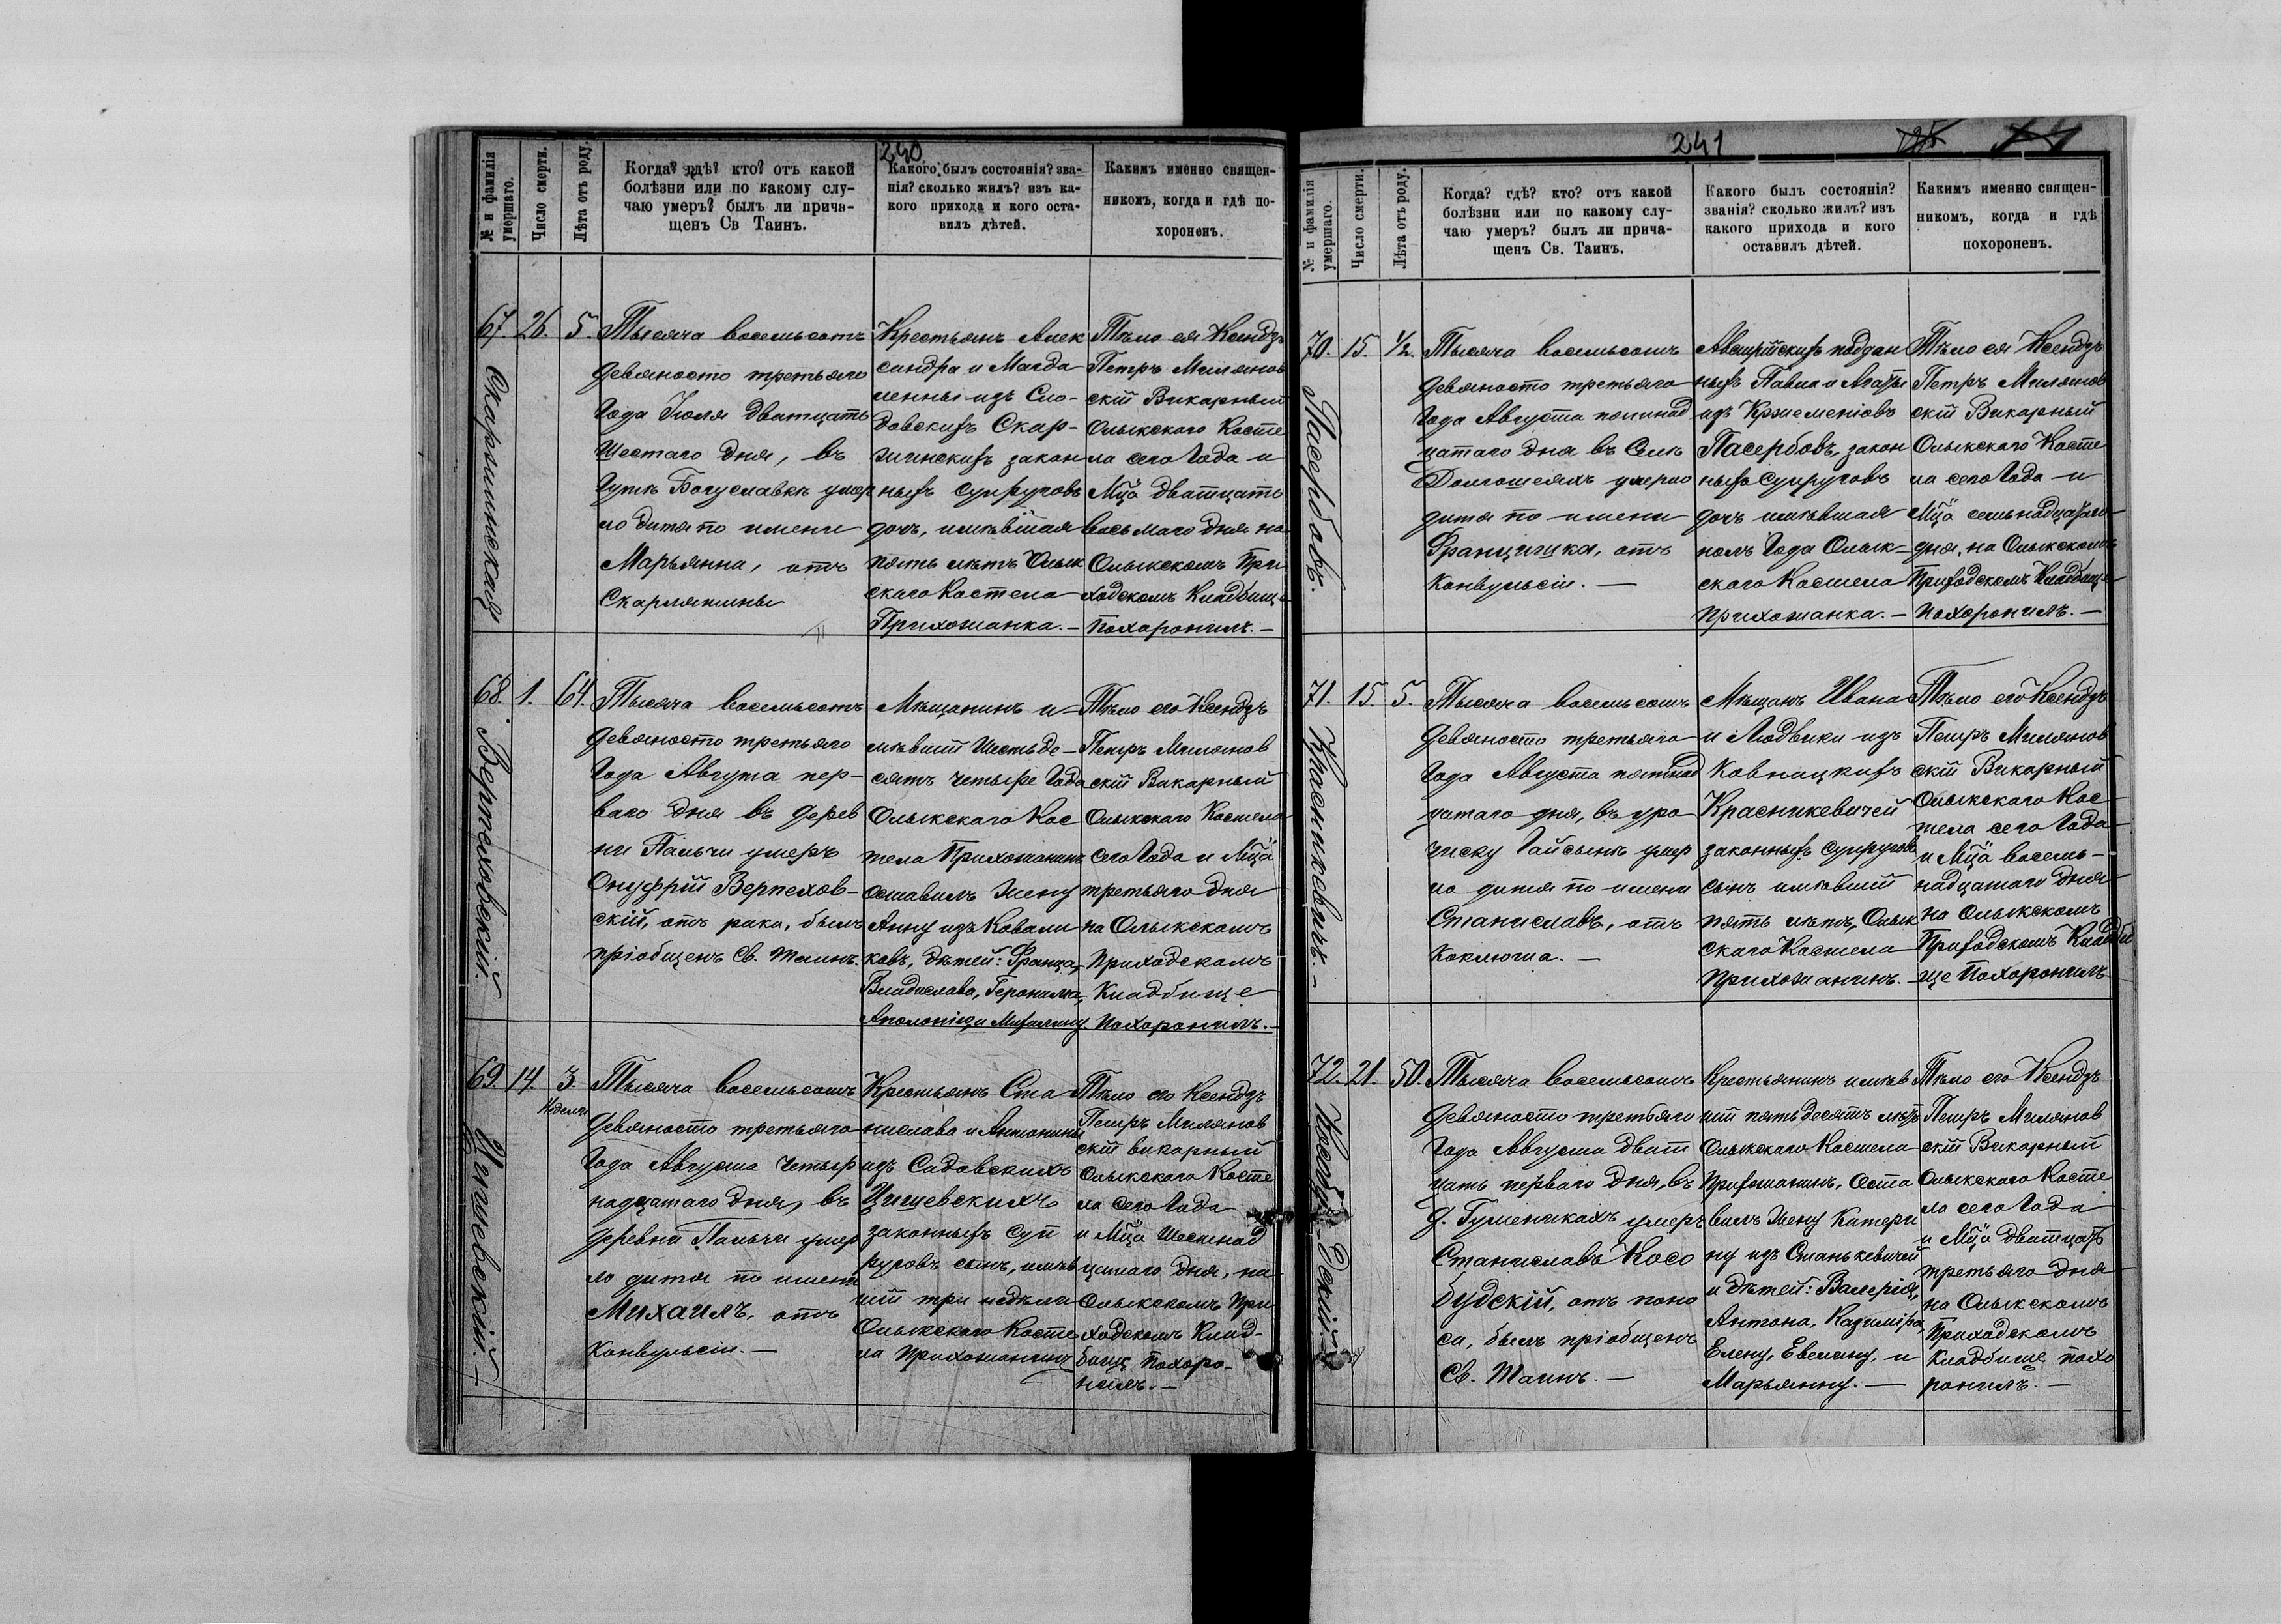 240
№ и фамилія умершаго.
Число смерти.
Лѣта отъ роду.
Когда? гдѣ? кто? отъ какой
болѣзни или по какому слу-
чаю умеръ? былъ ли прича-
щенъ Св Таинъ.
Какого былъ состоянія? зва-
нія? сколько жилъ? изъ ка-
кого прихода и кого оста-
вилъ дѣтей.
Какимъ именно священ-
никомъ, когда и гдѣ по-
хороненъ.
67.
26.
5.
Скаржинская
Тысяча восемьсотъ
девяносто третьяго
Года Іюля дватцать
Шестаго дня, въ
Гутѣ Богуславкѣ умер
ло дитя по имени
Марьянна, отъ
Скарлятины
Крестьянъ Алек
сандра и Магда
лены изъ Сло-
довскихъ Скар-
жинскихъ закон
ныхъ супруговъ
дочь, имѣвшая
пять лѣтъ Олык
скаго Костела
Прихожанка. —
Тѣло ея Ксендзъ
Петръ Милянов
скій Викарный
Олыкскаго Косте
ла сего Года и
Мца двадцать
восьмаго дня на
Олыкскомъ При
ходскомъ Кладбищѣ
Похоронилъ. —
68.
1.
64.
Верпеховскій.
Тысяча восемьсотъ
девяносто третьяго
Года Августа пер-
ваго дня въ дерев
ни Пальчи умеръ
Онуфрій Верпехов-
скій, отъ рака, былъ
пріобщенъ Св. Таинъ.
Мѣщанинъ и
мѣвшій Шестьде-
сятъ четыре Года
Олыкскаго Кос
тела Прихожанинъ
оставилъ Жену
Анну изъ Ковали
ковъ, дѣтей: Франца,
Владислава, Геронима,
Аполонію и Михалину.
Тѣло его Ксендзъ
Петръ Милянов
скій Викарный
Олыкскаго Костела
сего Года и Мца
третьяго дня
на Олыкскомъ
Приходскомъ
Кладбище
похоронилъ. —
69.
14.
3.
Недели
Цишевскій. —
Тысяча восемьсотъ
девяносто третьяго
Года Августа четыр
надцатаго дня, въ
деревни Пальчи умер
ло дитя по имени
Михаилъ, отъ
Конвульсіи. —
Крестьянъ Ста
нислава и Антонины
изъ Садовскихъ
Цишевскихъ
законныхъ суп
руговъ сынъ, имѣв
шій три недѣли
Олыкскаго Косте
ла прихожанинъ
Тѣло его Ксендзъ
Петръ Милянов
скій викарный
Олыкскаго Косте
ла сего Года
и Мца Шестнад
цатаго дня, на
Олыкскомъ При
ходскомъ Клад-
бищѣ Похоро-
нилъ. —
241
№ и фамилія умершаго.
Число смерти.
Лѣта отъ роду.
Когда? гдѣ? кто? отъ какой
болѣзни или по какому слу-
чаю умеръ? былъ ли прича-
щенъ Св. Таинъ.
Какого былъ состоянія?
званія? сколько жилъ? изъ
какого прихода и кого
оставилъ дѣтей.
Какимъ именно священ-
никомъ, когда и гдѣ
похороненъ.
70.
15.
1/2.
Пасербовъ.
Тысяча восемьсотъ
девяносто третьяго
Года Августа пятнад
цатаго дня въ Селѣ
Долгошеяхъ умерло
дитя по имени
Францишка, отъ
Конвульсіи. —
Австрійскихъ поддан
ныхъ Павла и Агаты
изъ Кржеменіовъ
Пасербовъ, закон
ныхъ супруговъ
дочь имѣвшая
полъ Года Олык-
скаго Костела
прихожанка. —
Тѣло ея Ксендзъ
Петръ Милянов
скій Викарный
Олыкскаго Косте
ла сего Года и
Мца семьнадцатаго
дня, на Олыкскомъ
Приходскомъ Кладбище
похоронилъ. —
71.
15.
5.
Красникевичъ. —
Тысяча восемьсотъ
девяносто третьяго
Года Августа пятнад
цатаго дня, въ уро
чиску Гайсынѣ умер
ло дитя по имени
Станиславъ, отъ
Коклюша. —
Мѣщанъ Ивана
и Людвики изъ
Ковницкихъ
Красникевичей
законныхъ супруговъ
сынъ имѣвшій
пять лѣтъ, Олык
скаго Костела
прихожанинъ. —
Тѣло его Ксендзъ
Петръ Милянов
скій Викарный
Олыкскаго Кос
тела сего Года
и Мца восемь-
надцатаго дня
на Олыкскомъ
Приходскомъ Кладби
ще Похоронилъ
72.
21.
50.
Тысяча восемьсотъ
девяносто третьяго
Года Августа Дват
цать перваго дня, въ
д. Гуменикахъ умеръ
Станиславъ Косо
будскій, отъ поно
са, былъ пріобщенъ
Св. Таинъ. —
Крестьянинъ имѣв
шій пятьдесятъ лѣтъ
Олыкскаго Костела
прихожанинъ, Оста
вилъ Жену Катери
ну изъ Станькевичей
и дѣтей: Валерія,
Антона, Казиміра,
Елену, Евелину, и
Марьянну. —
Тѣло его Ксендзъ
Петръ Милянов
скій Викарный
Олыкскаго Косте
ла сего Года
и Мца Двадцать
третьяго дня
на Олыкскомъ
Приходскомъ
Кладбище похо
ронилъ. —